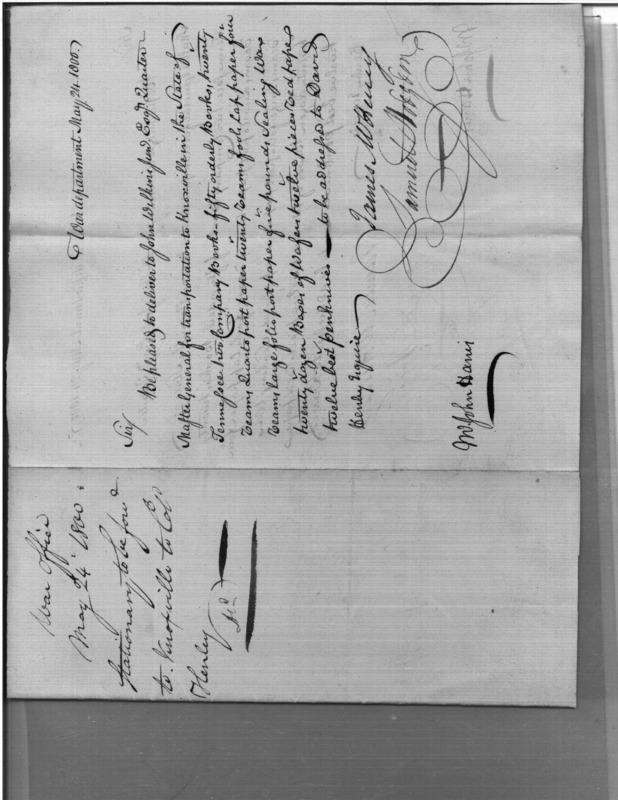 War department May 24. 1800.
Sir
Be pleased to deliver to John Wilkins junr. Esqr. Quarter
Master General for transportation to Knoxville in the State of
Tennessee two Company Books - fifty orderly Books, twenty
reams Quarto post paper twenty reams fools Cap paper four
reams large folio post paper five pounds Sealing Wax
twenty dozen Boxes of Wafers twelve pieces red tape &
twelve best penknives — to be addressed to David
Henley Esquire
James McHenry
Samuel Hodgdon
Mr John Harris
War Office
May 24th 1800.
Stationary to be forwd
to Knoxville to Colo
Henley